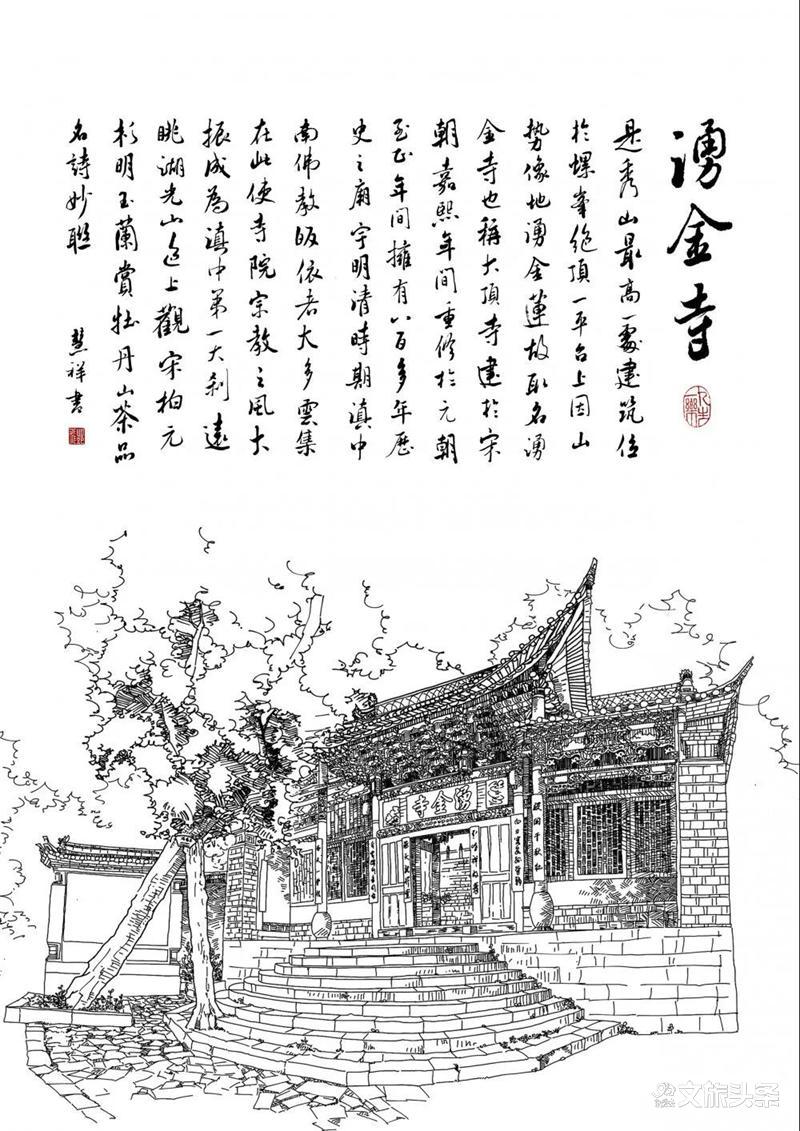 湧金寺
是秀山最高一處建筑位
於螺峯絶頂一平台上因山
勢像地湧金蓮故取名湧
金寺也稱大頂寺建於宋
朝嘉熙年間重修於元朝
至正年間擁有八百多年歷
史之廟宇明清時期滇中
南佛教皈依者大多雲集
在此使寺院宗教之風大
振成為滇中第一大刹遠
眺湖光山色上觀宋柏元
杉明玉蘭賞牡丹山茶品
名詩妙聯
慧祥書
湧金寺
文旅头条